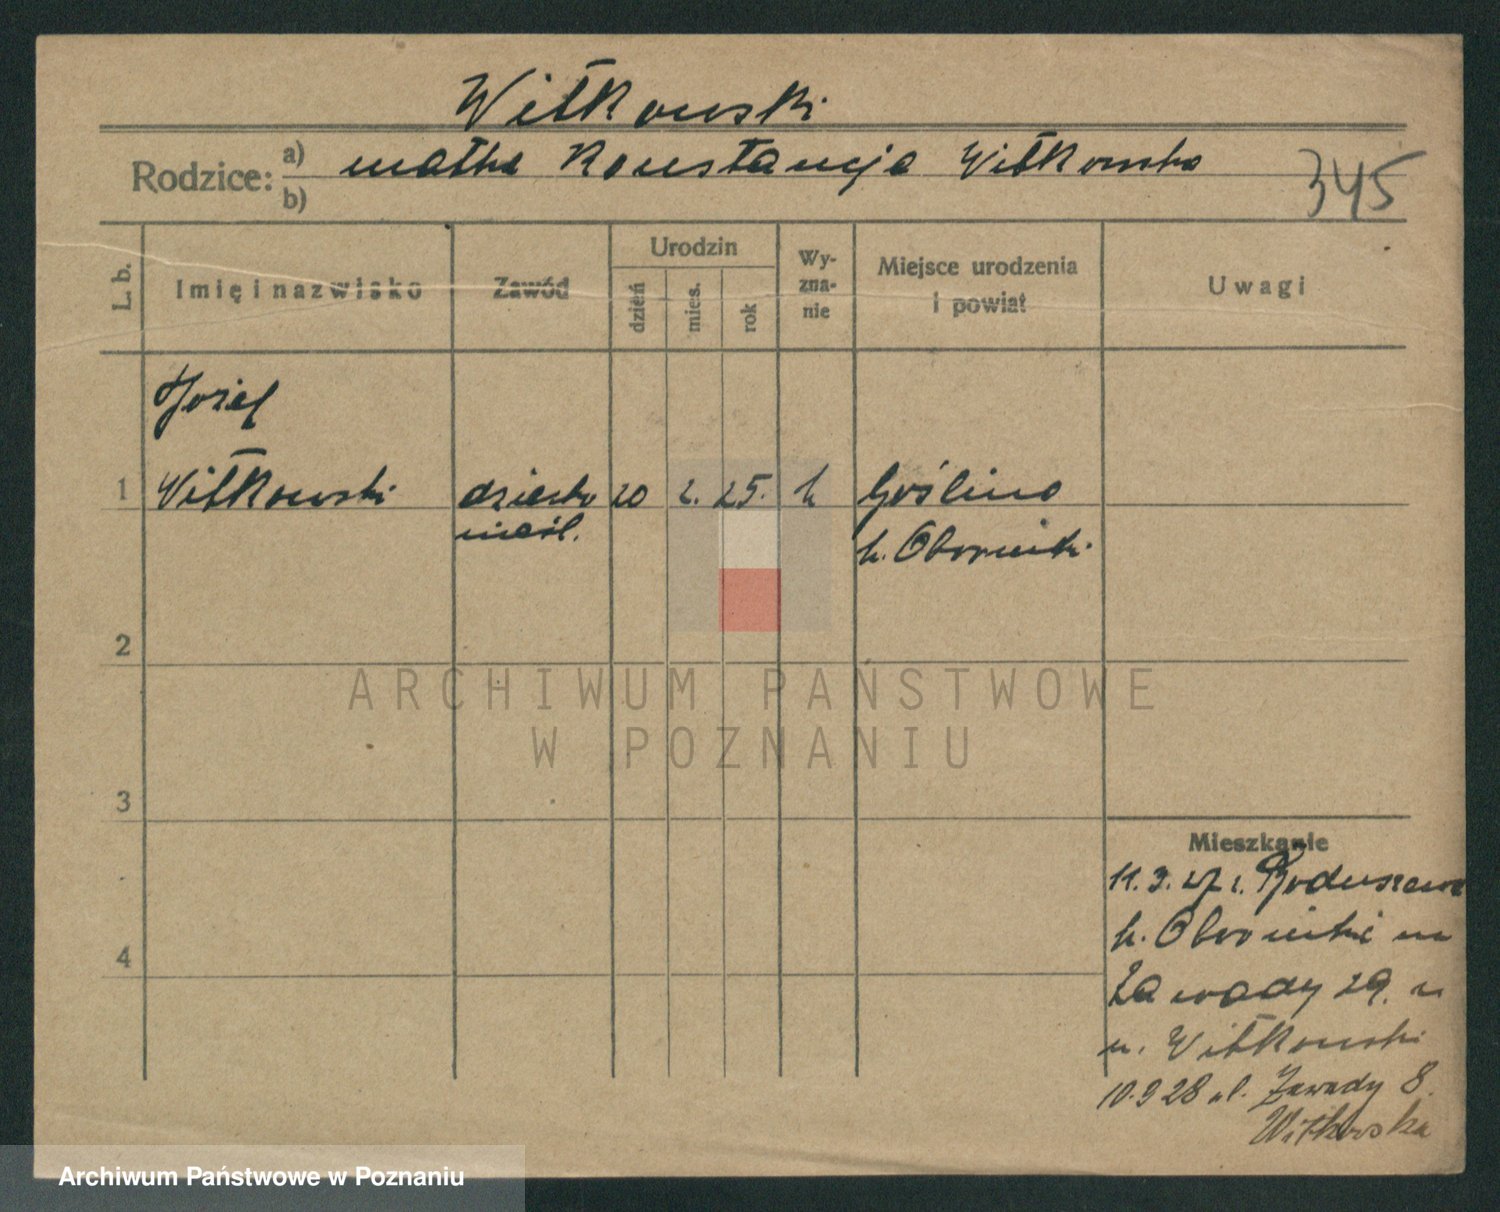 Witkowski
Rodzice: a) matka Konstancja Witkowska
b)
345
L. b.
Imię i nazwisko
Zawód
Urodzin
dzień
mies.
rok
Wy-
zna-
nie
Miejsce urodzenia
i powiat
Uwagi
Józef
1 Witkowski dziecko 20 2. 25. k Goślina
nieśl. p. Obornicki
2
3
4
Mieszkanie
11.3.27 z
p. Obornicki
Zawady 29.
u. Witkowski
10.9 28 ul. Zawady 8.
Witkowska
ARCHIWUM PAŃSTWOWE
W POZNANIU
Archiwum Państwowe w Poznaniu